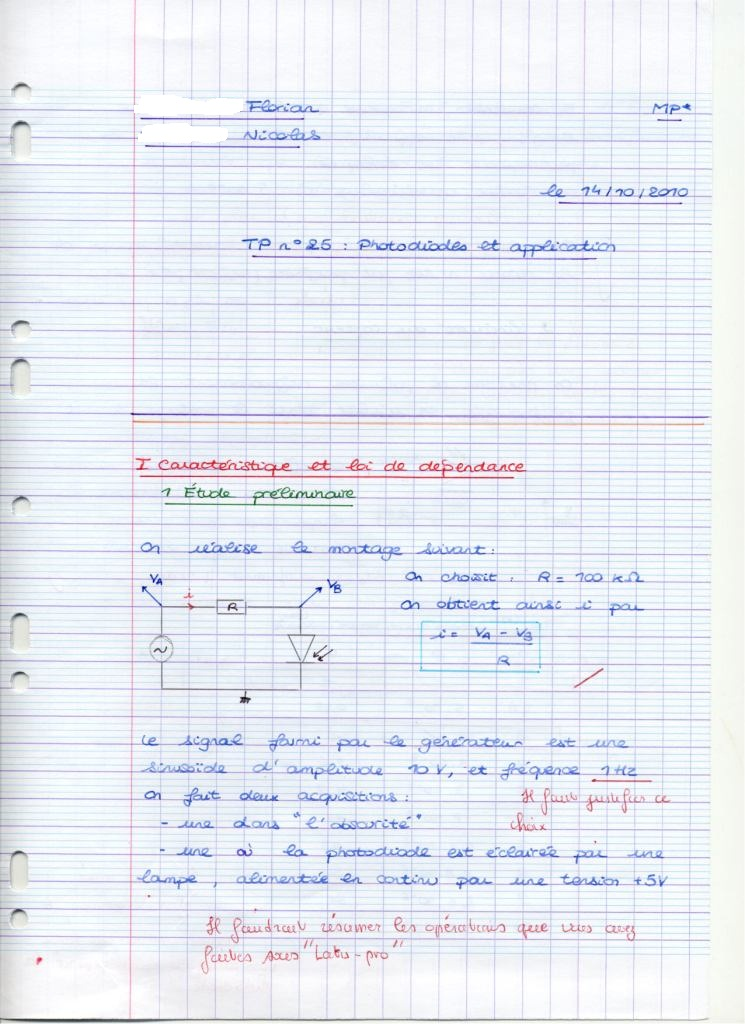 Florian
MP*
Nicolas
le 14/10/2010
TP n°25 : Photodiodes et application
I Caractéristique et loi de dépendance
1 Étude préliminaire
On réalise le montage suivant :
VA
i
R
VB
~
On choisit : R = 100 kΩ
On obtient ainsi i par
i = VA - VB
R
Le signal fourni par le générateur est une
sinusoïde d'amplitude 10 V, et fréquence 1Hz
Il faut justifier ce
choix
On fait deux acquisitions :
- une dans "l'obscurité"
- une où la photodiode est éclairée par une
lampe, alimentée en continu par une tension +5V
Il faudrait résumer les opérations que vous avez
faites sous "Latis-pro"